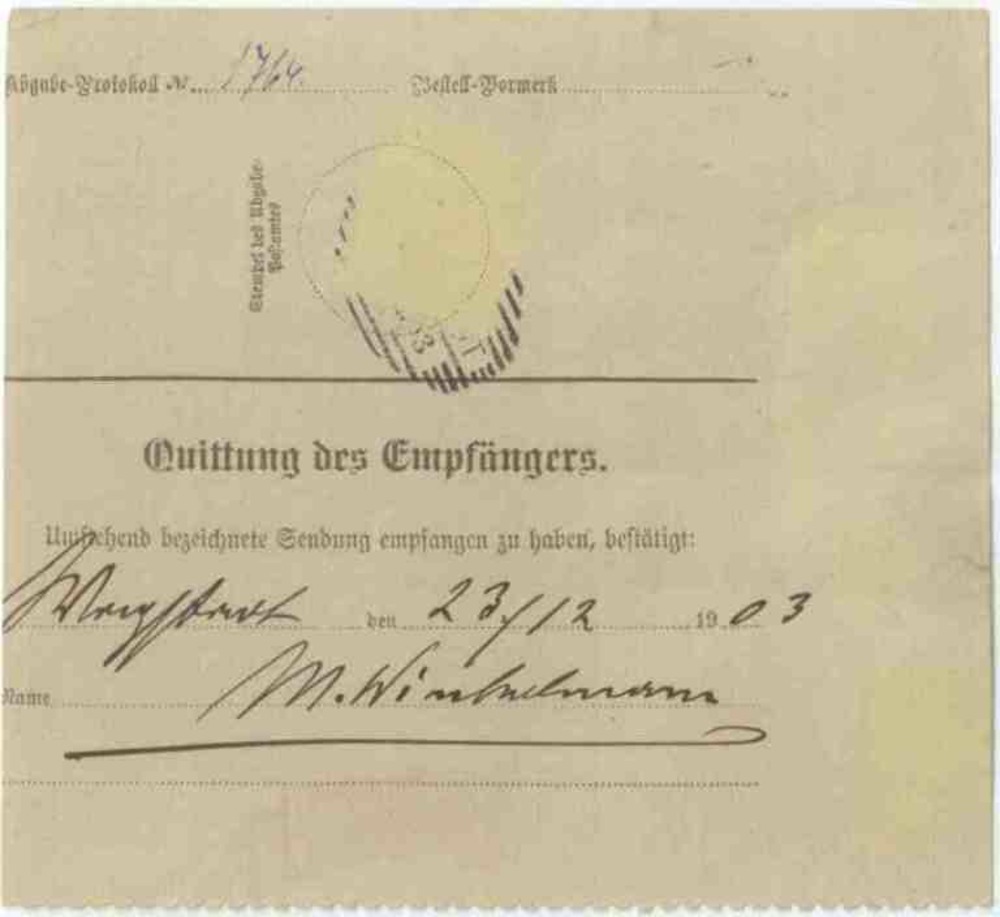 Abgabe-Protokoll Nr. 1764 Bestell-Vormerk
Stempel des Abgabe-
Postamtes
Quittung des Empfängers.
Umstehend bezeichnete Sendung empfangen zu haben, bestätigt:
Wagstadt den 23/12 1903
Name M. Winkelmann